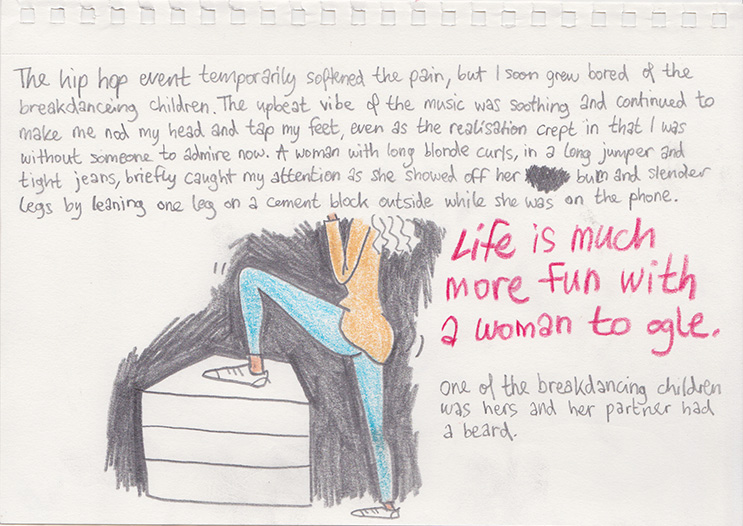 The hip hop event temporarily softened the pain, but I soon grew bored of the
breakdanceing children. The upbeat vibe of the music was soothing and continued to
make me nod my head and tap my feet, even as the realisation crept in that I was
without someone to admire now. A woman with long blonde curls, in a long jumper and
tight jeans, briefly caught my attention as she showed off her bum and slender
legs by leaning one leg on a cement block outside while she was on the phone.
Life is much
more fun with
a woman to ogle.
One of the breakdancing children
was hers and her partner had
a beard.